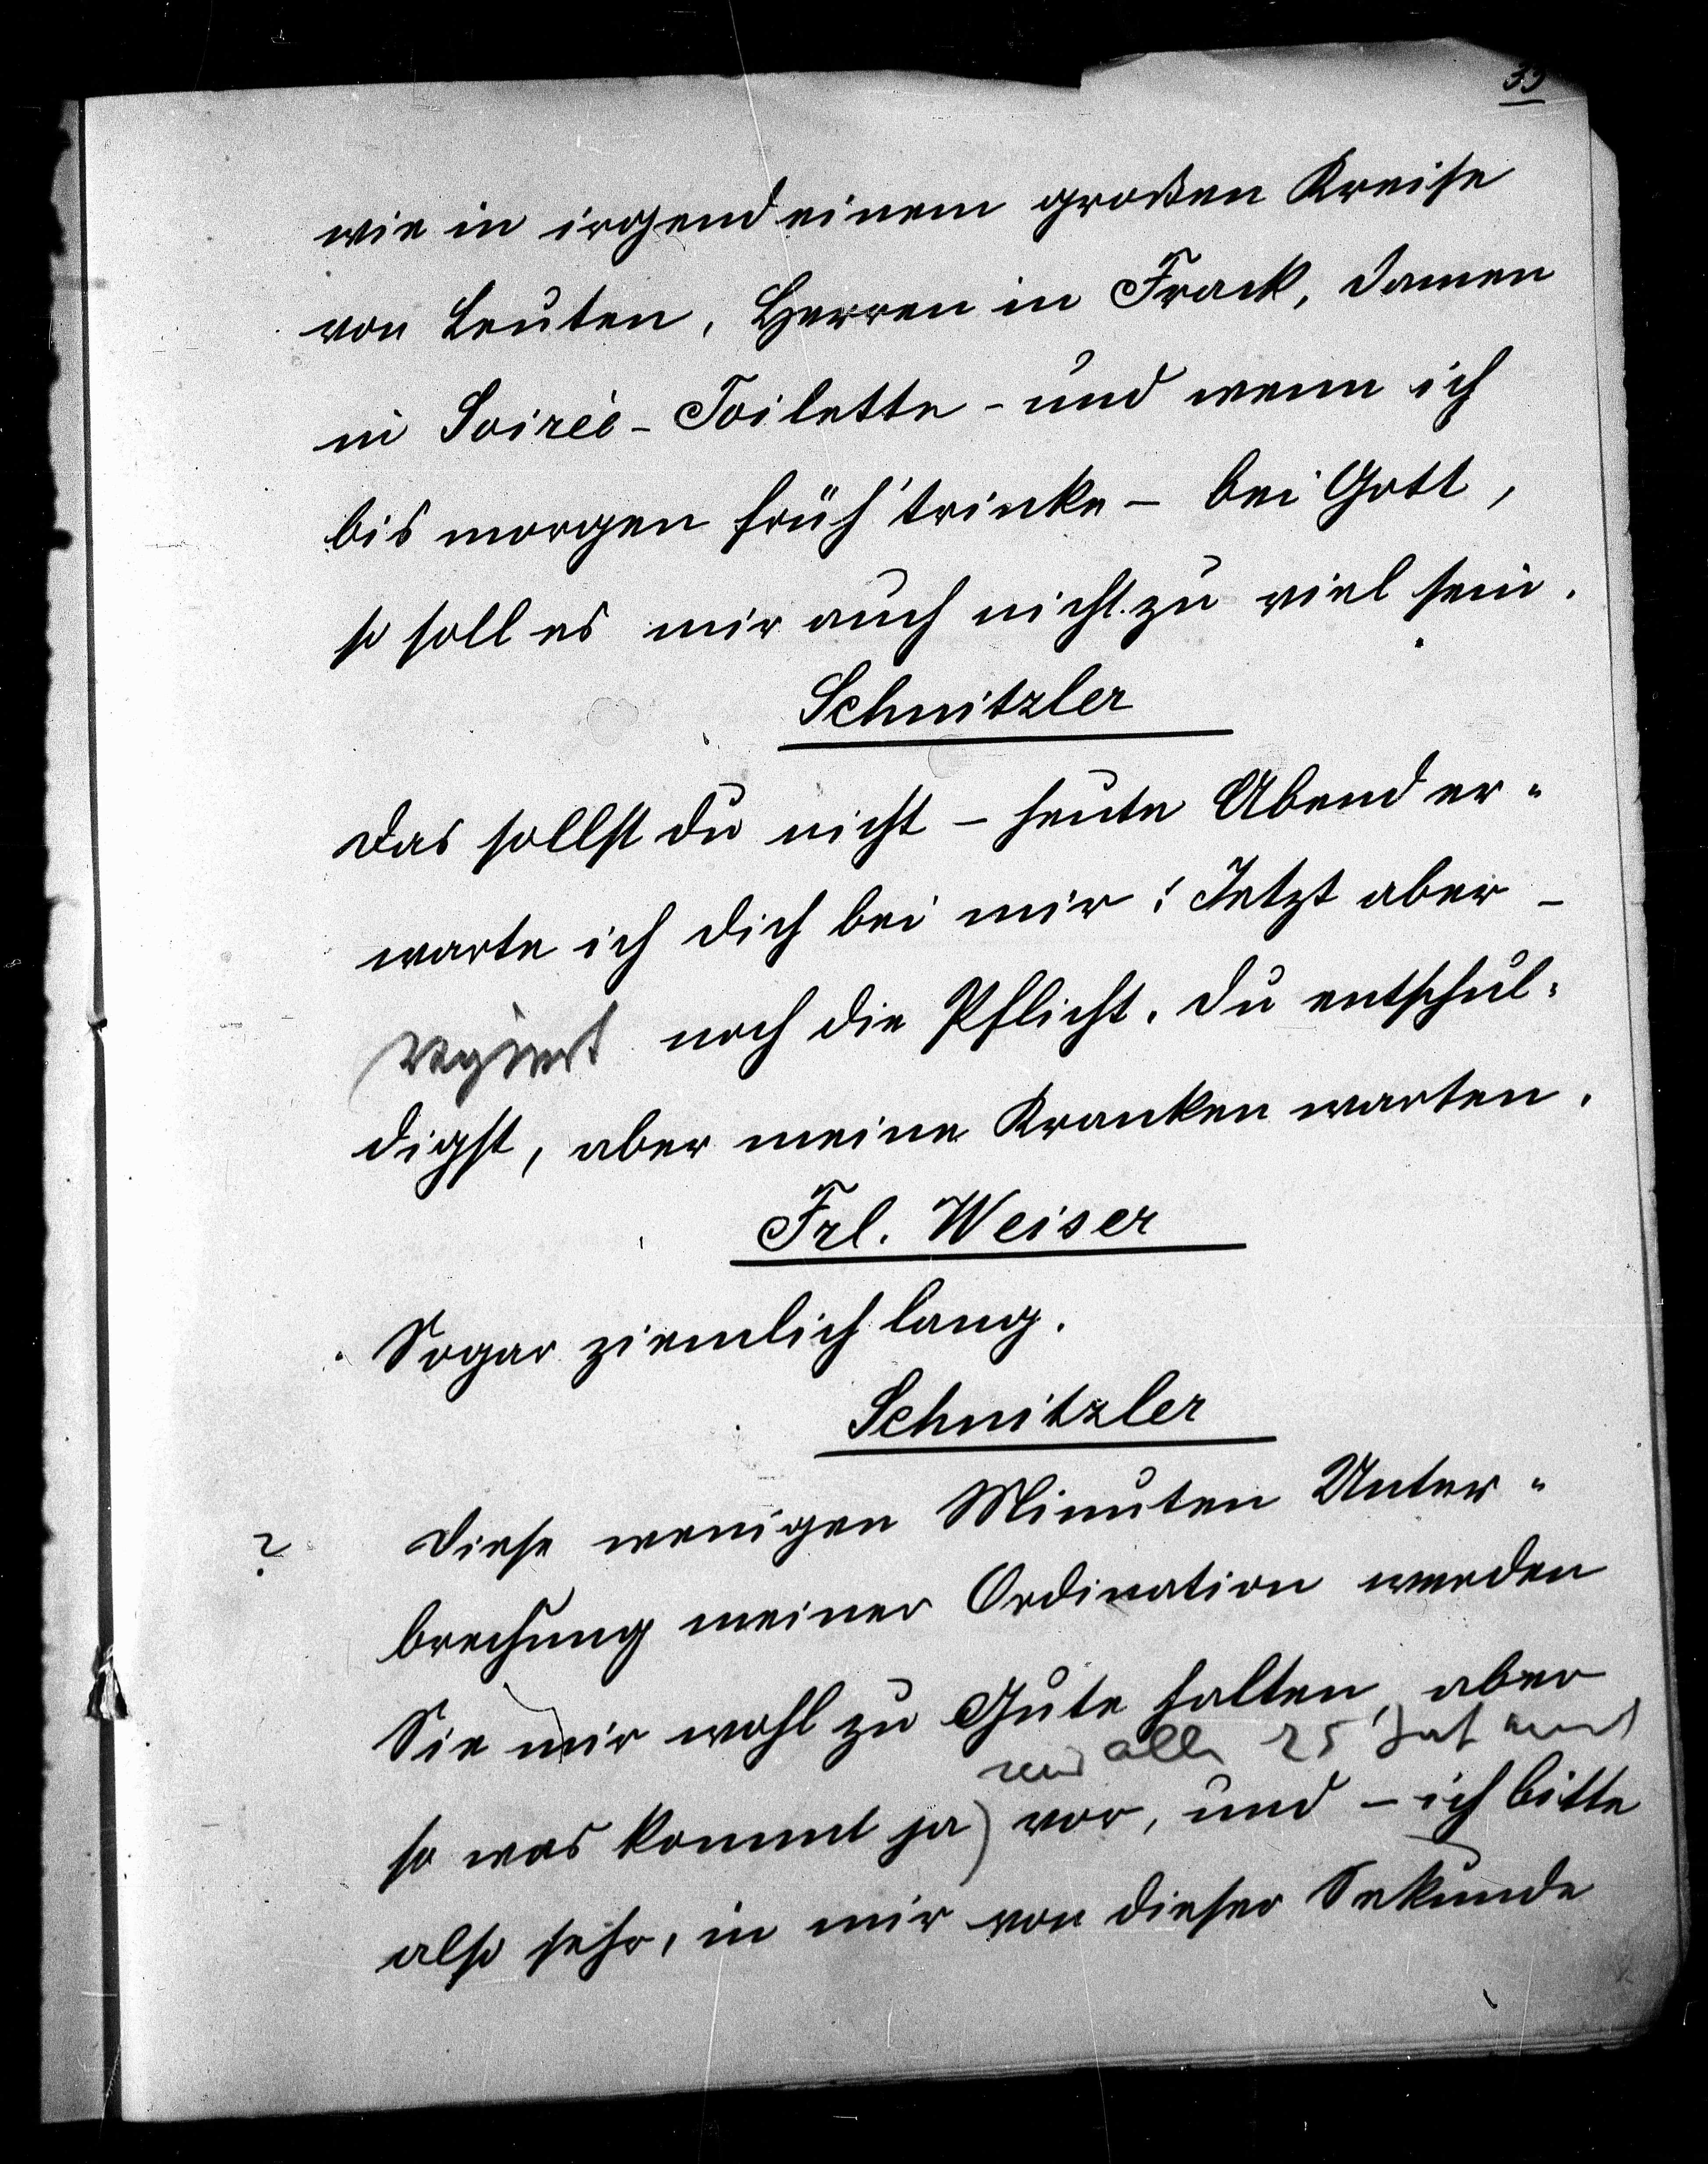 35
wie in irgend einem großen Kreise
von Leuten, Herren in Frack, Damen
in Soirèe-Toilette - und wenn ich
bis morgen früh' trinke - bei Gott,
so soll es mir auch nicht zu viel sein.
Schnitzler
Das sollst du nicht - heute Abend er-
warte ich dich bei mir! Jetzt aber -
regiert noch die Pflicht. Du entschul-
digst, aber meine Kranken warten.
Frl. Weiser
Sogar ziemlich lang.
Schnitzler
? Diese wenigen Minuten Unter-
brechung meiner Ordination werden
Sie mir wohl zu Gute halten, aber
nur alle 25 Jahr
so was kommt ja) vor, und - ich bitte
also sehr, in mir von dieser Sekunde